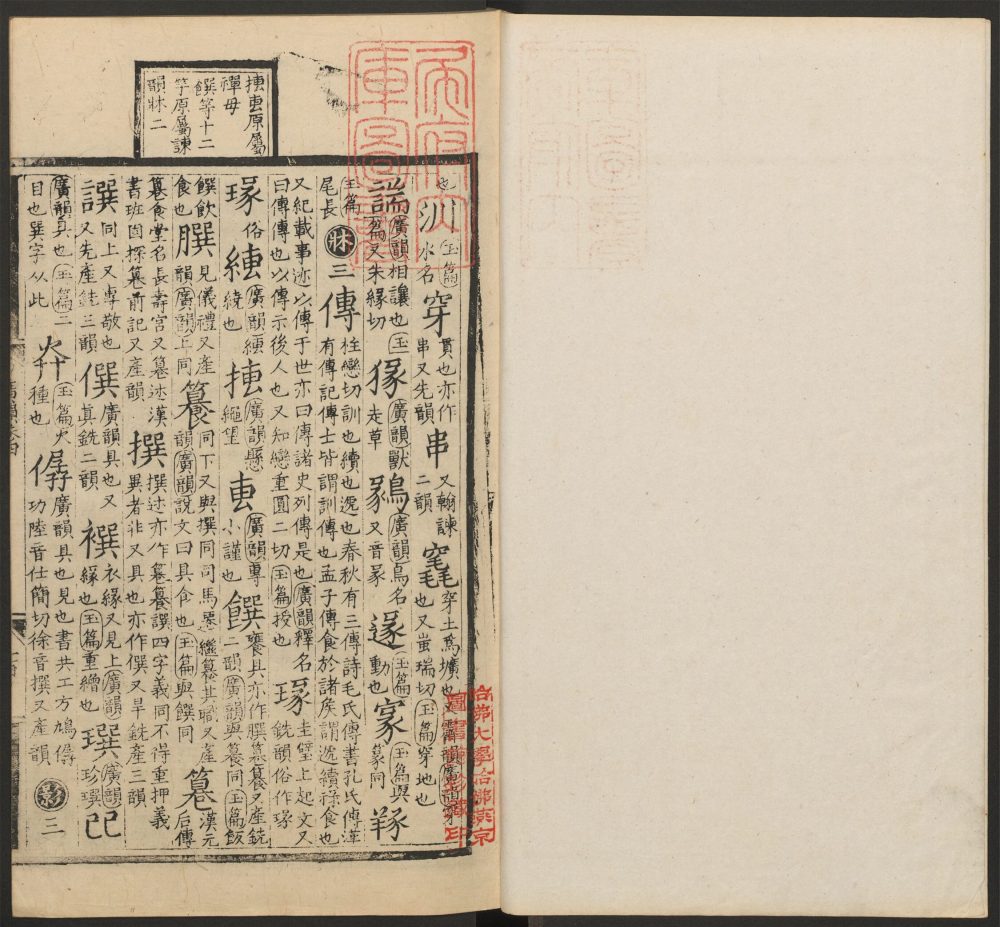 摶叀原屬
禪毋
饌等十二
字原屬諫
韻牀二
也汌玉篇水名穿貫也亦作串又先韻串又翰諫二韻竁穿土爲壙也又韻廣韻穿也又蚩瑞切玉篇穿地也
諯廣韻相讓也玉篇又朱緣切猭廣韻獸走草鶨廣韻鳥名又音彖玉篇動也玉篇與篆同
玉篇尾長牀三傳柱戀切訓也續也遞也春秋有三傳詩毛氏傳書孔氏傳漢有傳記傳士皆謂訓傳也孟子傳食於諸矦謂遞續祿食也
又紀載事迹以傳于世亦曰傳諸史列傳是也廣韻釋名曰傳傳也以傳示後人也又知戀重圓二切玉篇授也瑑圭璧上起文又銑韻俗作瑑
瑑俗縳廣韻縳繞也摶廣韻懸繩望叀廣韻專小謹也饌饔具亦作䐣篹籑又產銑二韻廣韻與籑同玉篇飯
饌飲食也䐣見儀禮又產韻廣韻上同籑同下又與撰同司馬遷繼籑其職又產韻廣韻說文曰具食也玉篇與饌同篹漢元后傳
篹食堂名長壽宮又篹述漢書班固探篹前記又產韻撰撰述亦作篹籑譔四字義同不得重押義異者非又具也亦作僎又旱銑產三韻
譔同上又專敬也又先產銑三韻僎廣韻具也又眞銑二韻襈衣緣又見上廣韻緣也玉篇重繒也㻡廣韻珍㻡
廣韻具也玉篇二目也巽字从此玉篇火種也僝廣韻具也見也書共工方鳩僝功陸音仕簡切徐音撰又產韻影三
哈佛大學哈佛燕京
圖書館珍藏印